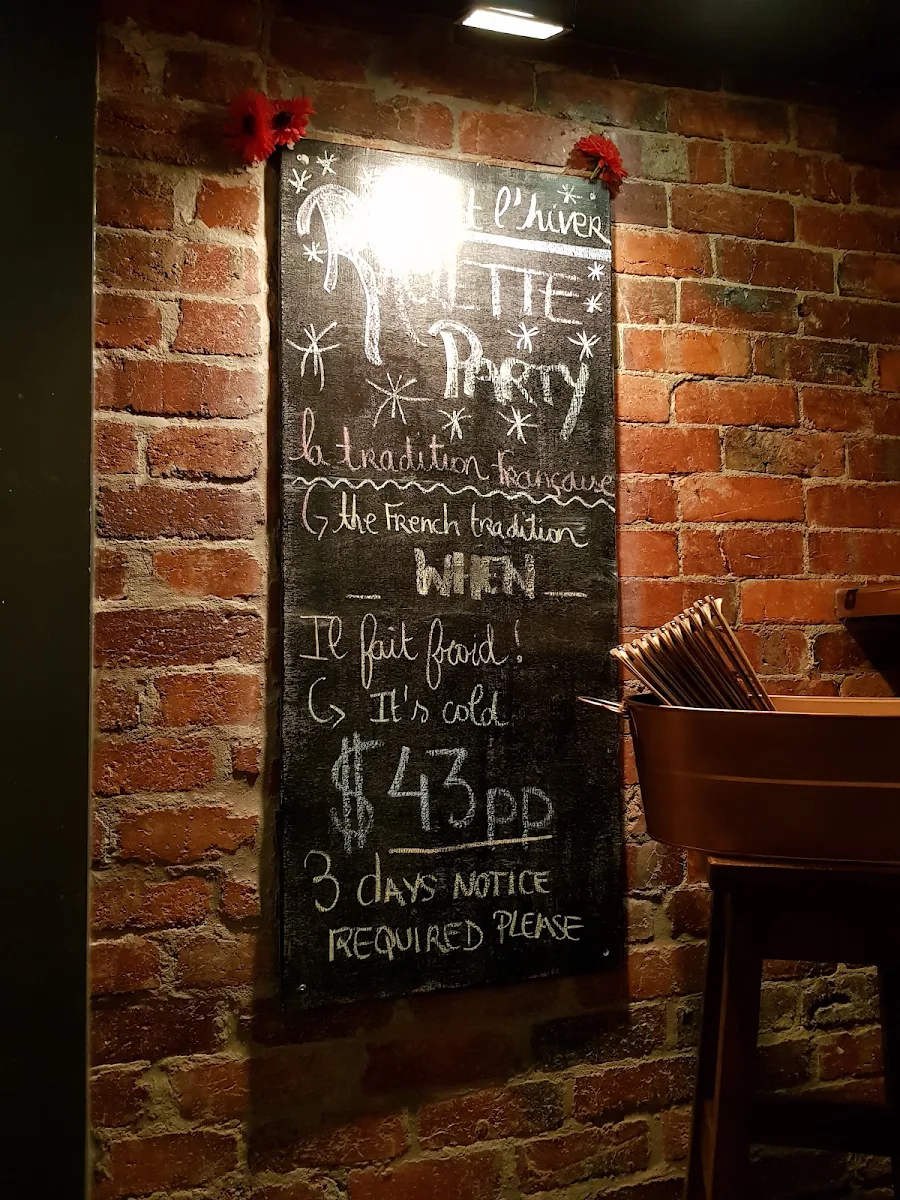 l'hiver
RACLETTE
PARTY
la tradition Française
the French tradition
WHEN
Il fait froid!
It's cold
$43pp
3 dAYS NOTICE
REQUIRED PLEASE